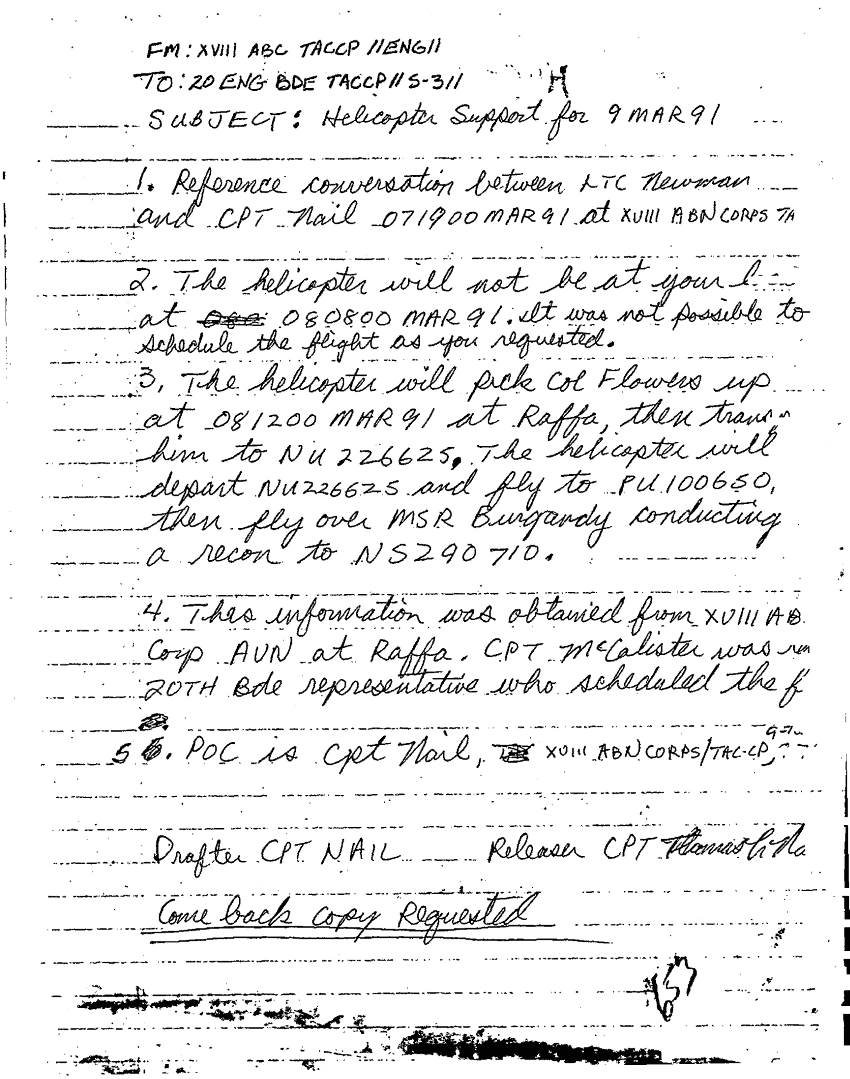 FM: XVIII ABC TACCP //ENG//
TO: 20 ENG BDE TACCP // S-3 //
H
SUBJECT: Helicopter Support for 9 MAR 91
1. Reference conversation between LTC Newman
and CPT Nail 071900 MAR 91 at XVIII ABN CORPS TA
2. The helicopter will not be at your
at 080800 MAR 91. It was not possible to
schedule the flight as you requested.
3. The helicopter will pick Col Flowers up
at 081200 MAR 91 at Raffa, then trans
him to NU 226625. The helicopter will
depart NU226625 and fly to PU100650,
then fly over MSR Burgandy conducting
a recon to NS290710.
4. Thes information was obtained from XVIII AB
Corp AVN at Raffa. CPT McCalister was
20TH Bde representative who scheduled the f
5. POC is Cpt Nail, XVIII ABN CORPS/TAC-CP,
Drafter CPT NAIL Releaser CPT Thomas
Come back copy Requested